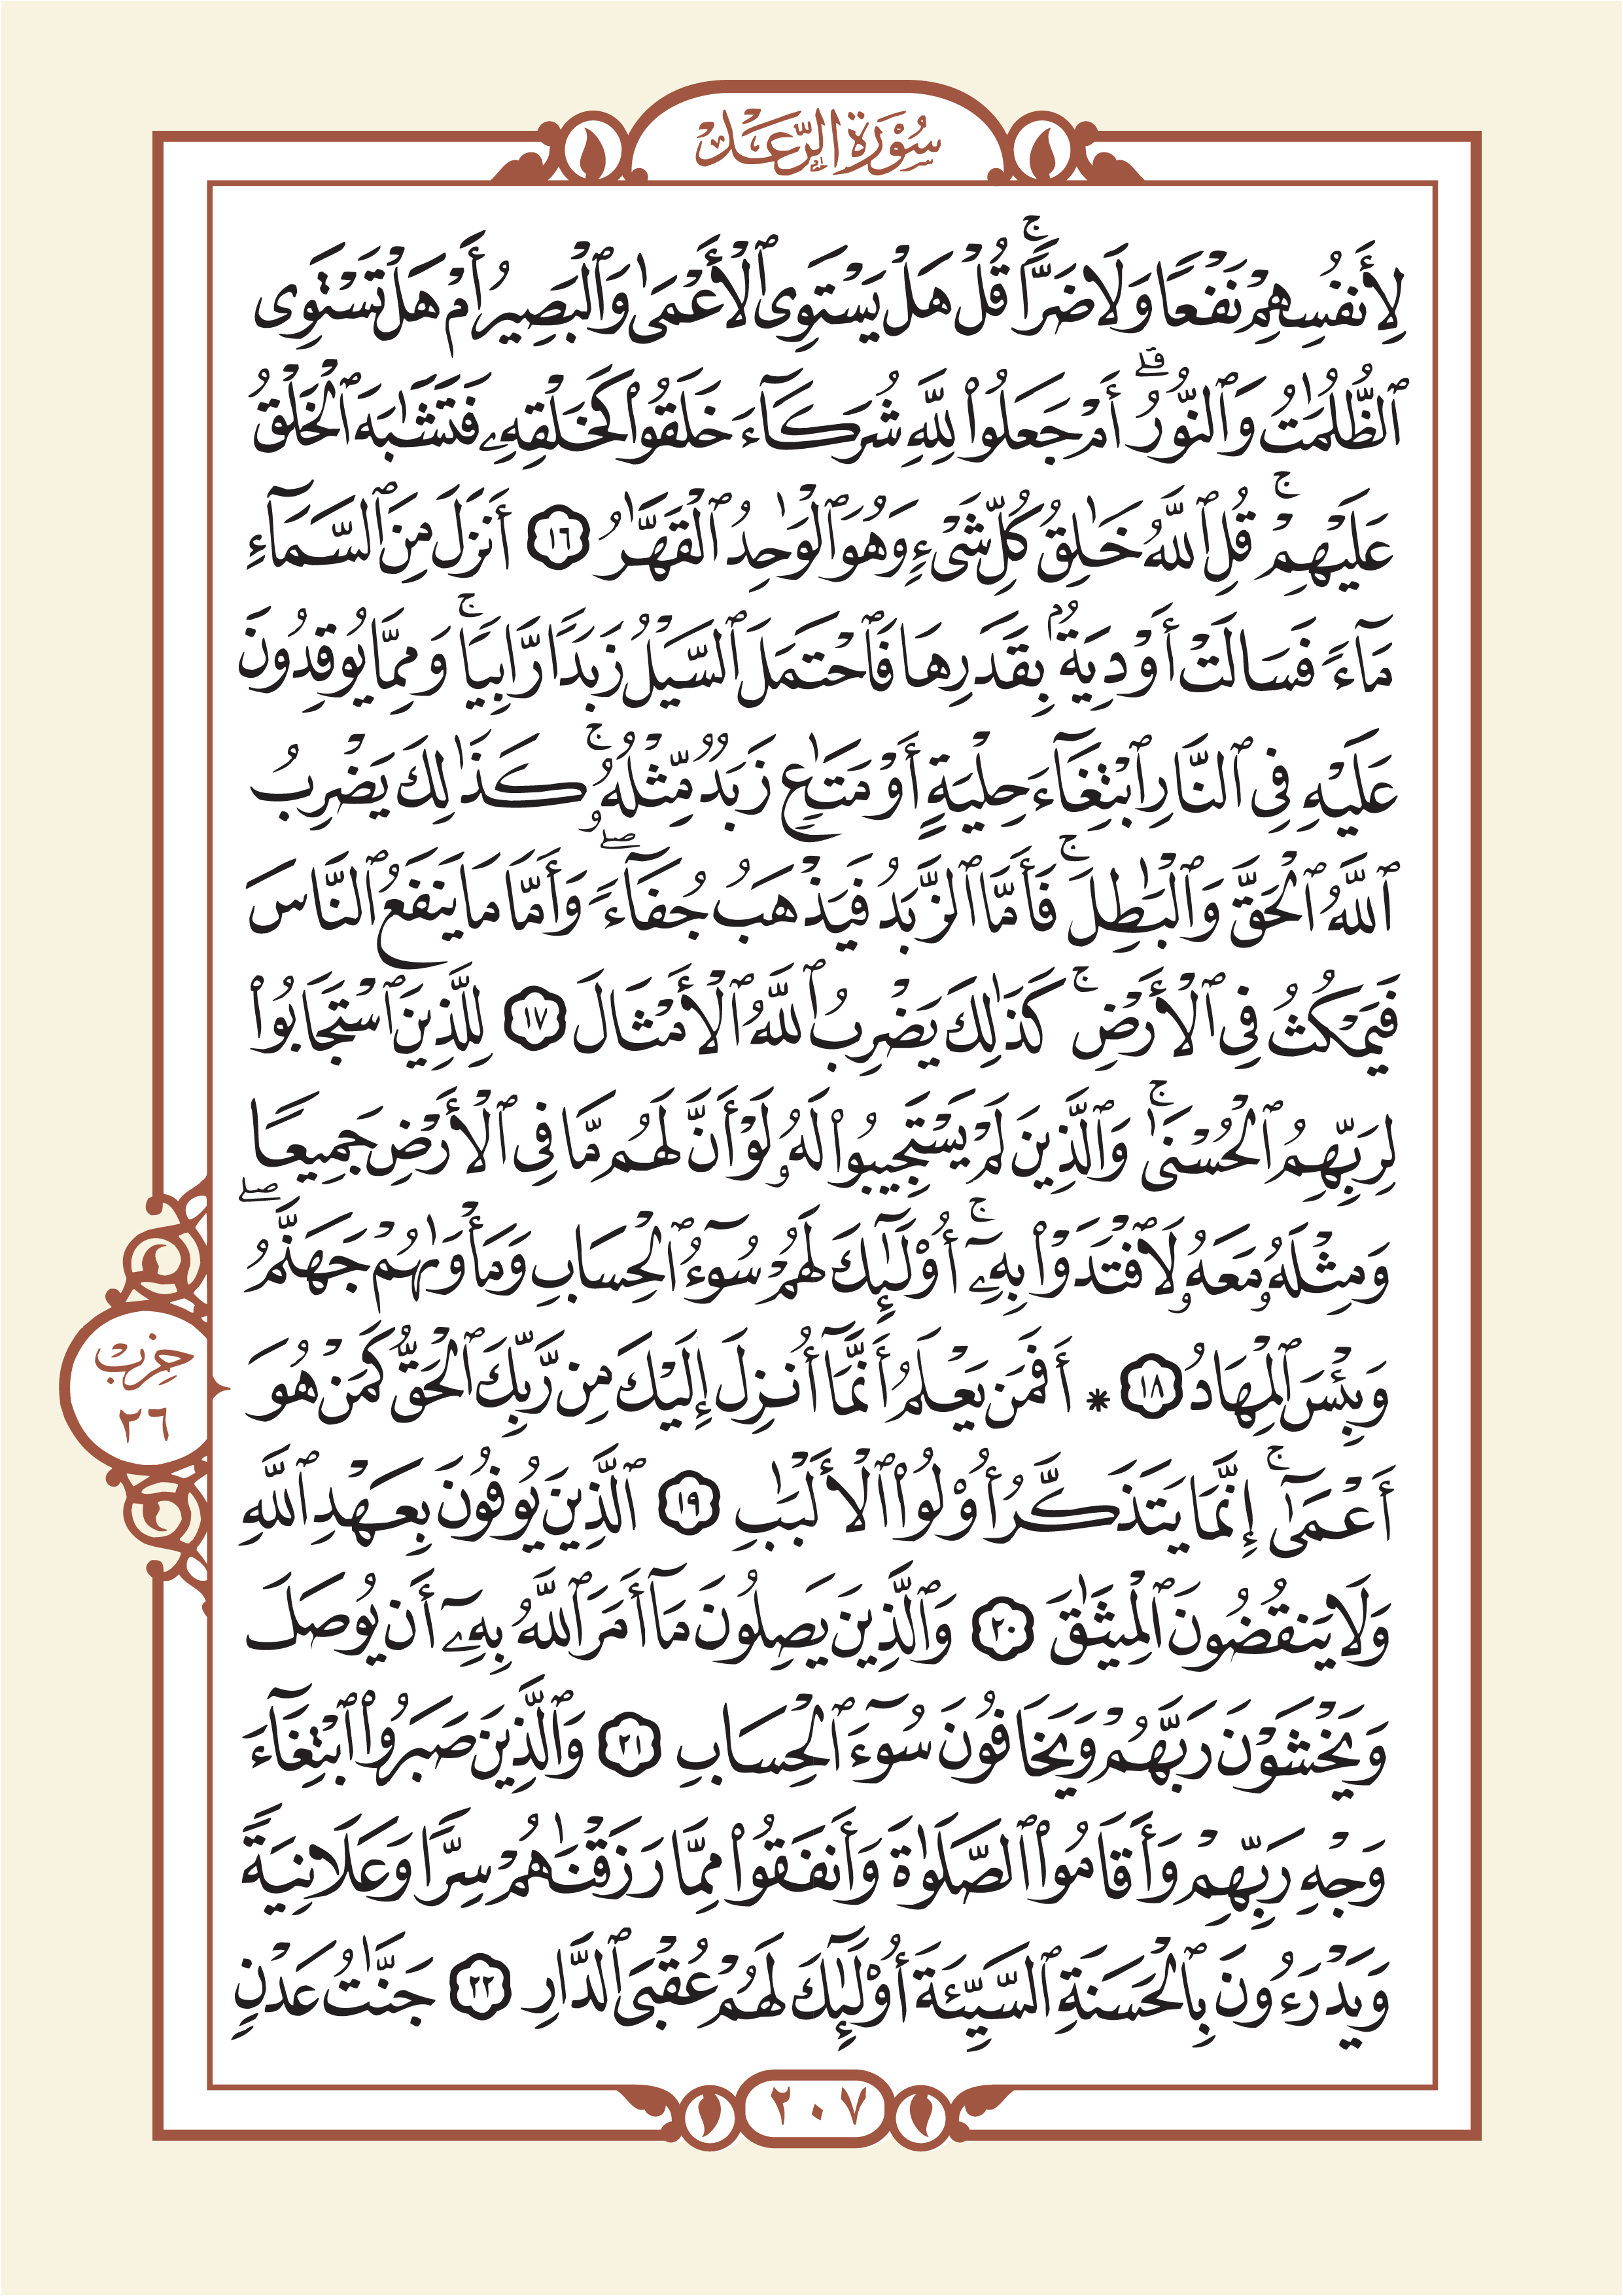 سُورَةُ الرَّعْد
لِأَنفُسِهِمْ نَفْعًا وَلَا ضَرًّاۚ قُلْ هَلْ يَسْتَوِى ٱلْأَعْمَىٰ وَٱلْبَصِيرُ أَمْ هَلْ تَسْتَوِى
ٱلظُّلُمَٰتُ وَٱلنُّورُۗ أَمْ جَعَلُوا۟ لِلَّهِ شُرَكَآءَ خَلَقُوا۟ كَخَلْقِهِۦ فَتَشَٰبَهَ ٱلْخَلْقُ
عَلَيْهِمْۚ قُلِ ٱللَّهُ خَٰلِقُ كُلِّ شَىْءٍ وَهُوَ ٱلْوَٰحِدُ ٱلْقَهَّٰرُ ١٦ أَنزَلَ مِنَ ٱلسَّمَآءِ
مَآءً فَسَالَتْ أَوْدِيَةٌۢ بِقَدَرِهَا فَٱحْتَمَلَ ٱلسَّيْلُ زَبَدًا رَّابِيًاۚ وَمِمَّا يُوقِدُونَ
عَلَيْهِ فِى ٱلنَّارِ ٱبْتِغَآءَ حِلْيَةٍ أَوْ مَتَٰعٍ زَبَدٌ مِّثْلُهُۥۚ كَذَٰلِكَ يَضْرِبُ
ٱللَّهُ ٱلْحَقَّ وَٱلْبَٰطِلَۚ فَأَمَّا ٱلزَّبَدُ فَيَذْهَبُ جُفَآءًۖ وَأَمَّا مَا يَنفَعُ ٱلنَّاسَ
فَيَمْكُثُ فِى ٱلْأَرْضِۚ كَذَٰلِكَ يَضْرِبُ ٱللَّهُ ٱلْأَمْثَالَ ١٧ لِلَّذِينَ ٱسْتَجَابُوا۟
لِرَبِّهِمُ ٱلْحُسْنَىٰۚ وَٱلَّذِينَ لَمْ يَسْتَجِيبُوا۟ لَهُۥ لَوْ أَنَّ لَهُم مَّا فِى ٱلْأَرْضِ جَمِيعًا
وَمِثْلَهُۥ مَعَهُۥ لَٱفْتَدَوْا۟ بِهِۦٓۚ أُو۟لَٰٓئِكَ لَهُمْ سُوٓءُ ٱلْحِسَابِ وَمَأْوَىٰهُمْ جَهَنَّمُۖ
وَبِئْسَ ٱلْمِهَادُ ١٨ * أَفَمَن يَعْلَمُ أَنَّمَآ أُنزِلَ إِلَيْكَ مِن رَّبِّكَ ٱلْحَقُّ كَمَنْ هُوَ
أَعْمَىٰٓۚ إِنَّمَا يَتَذَكَّرُ أُو۟لُوا۟ ٱلْأَلْبَٰبِ ١٩ ٱلَّذِينَ يُوفُونَ بِعَهْدِ ٱللَّهِ
وَلَا يَنقُضُونَ ٱلْمِيثَٰقَ ٢٠ وَٱلَّذِينَ يَصِلُونَ مَآ أَمَرَ ٱللَّهُ بِهِۦٓ أَن يُوصَلَ
وَيَخْشَوْنَ رَبَّهُمْ وَيَخَافُونَ سُوٓءَ ٱلْحِسَابِ ٢١ وَٱلَّذِينَ صَبَرُوا۟ ٱبْتِغَآءَ
وَجْهِ رَبِّهِمْ وَأَقَامُوا۟ ٱلصَّلَوٰةَ وَأَنفَقُوا۟ مِمَّا رَزَقْنَٰهُمْ سِرًّا وَعَلَانِيَةً
وَيَدْرَءُونَ بِٱلْحَسَنَةِ ٱلسَّيِّئَةَ أُو۟لَٰٓئِكَ لَهُمْ عُقْبَى ٱلدَّارِ ٢٢ جَنَّٰتُ عَدْنٍ
حِزْب
٢٦
٢٠٧